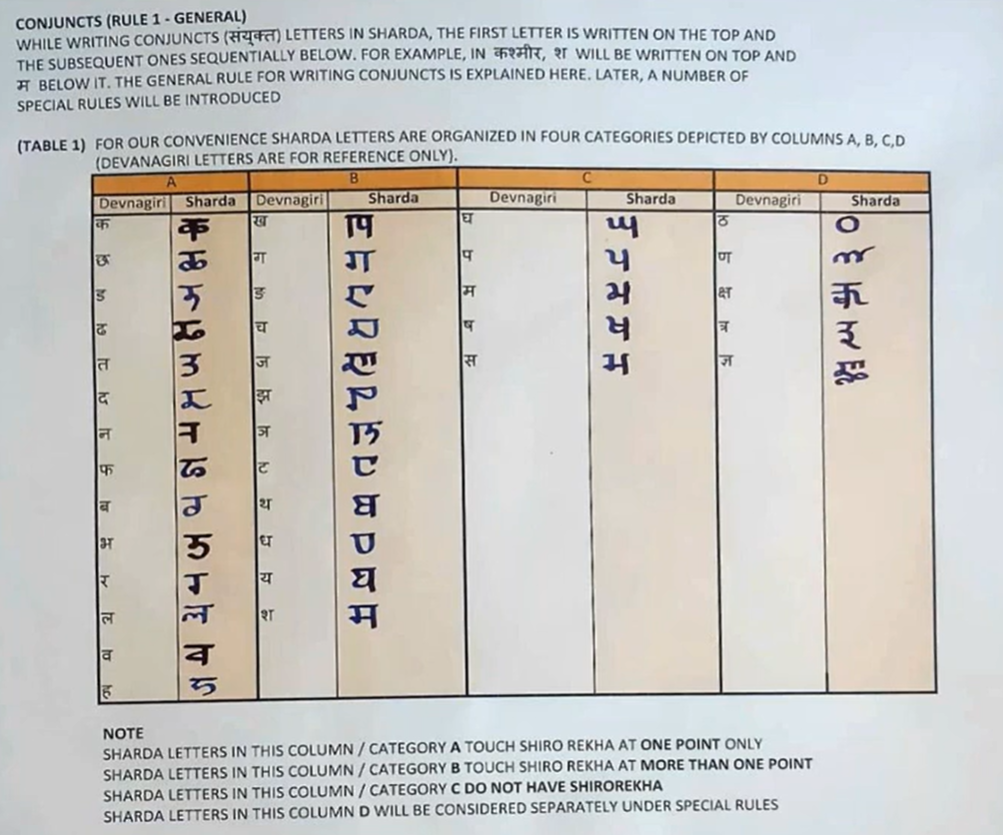 CONJUNCTS (RULE 1 - GENERAL)
WHILE WRITING CONJUNCTS (संयुक्त) LETTERS IN SHARDA, THE FIRST LETTER IS WRITTEN ON THE TOP AND
THE SUBSEQUENT ONES SEQUENTIALLY BELOW. FOR EXAMPLE, IN कश्मीर, श WILL BE WRITTEN ON TOP AND
म BELOW IT. THE GENERAL RULE FOR WRITING CONJUNCTS IS EXPLAINED HERE. LATER, A NUMBER OF
SPECIAL RULES WILL BE INTRODUCED
(TABLE 1) FOR OUR CONVENIENCE SHARDA LETTERS ARE ORGANIZED IN FOUR CATEGORIES DEPICTED BY COLUMNS A, B, C,D
(DEVANAGIRI LETTERS ARE FOR REFERENCE ONLY).
A B C D
Devnagiri Sharda Devnagiri Sharda Devnagiri Sharda Devnagiri Sharda
क 𑆑 ख 𑆒 घ 𑆔 ठ 𑆜
छ 𑆗 ग 𑆓 प 𑆥 ण 𑆟
ड 𑆝 ङ 𑆕 म 𑆩 क्ष 𑆑𑇀𑆰
ढ 𑆞 च 𑆖 ष 𑆰 त्र 𑆠𑇀𑆫
त 𑆠 ज 𑆘 स 𑆱 ज्ञ 𑆘𑇀𑆚
द 𑆢 झ 𑆙
न 𑆤 ञ 𑆚
फ 𑆦 ट 𑆛
ब 𑆧 थ 𑆡
भ 𑆨 ध 𑆣
र 𑆫 य 𑆪
ल 𑆬 श 𑆯
व 𑆮
ह 𑆲
NOTE
SHARDA LETTERS IN THIS COLUMN / CATEGORY A TOUCH SHIRO REKHA AT ONE POINT ONLY
SHARDA LETTERS IN THIS COLUMN / CATEGORY B TOUCH SHIRO REKHA AT MORE THAN ONE POINT
SHARDA LETTERS IN THIS COLUMN / CATEGORY C DO NOT HAVE SHIROREKHA
SHARDA LETTERS IN THIS COLUMN D WILL BE CONSIDERED SEPARATELY UNDER SPECIAL RULES